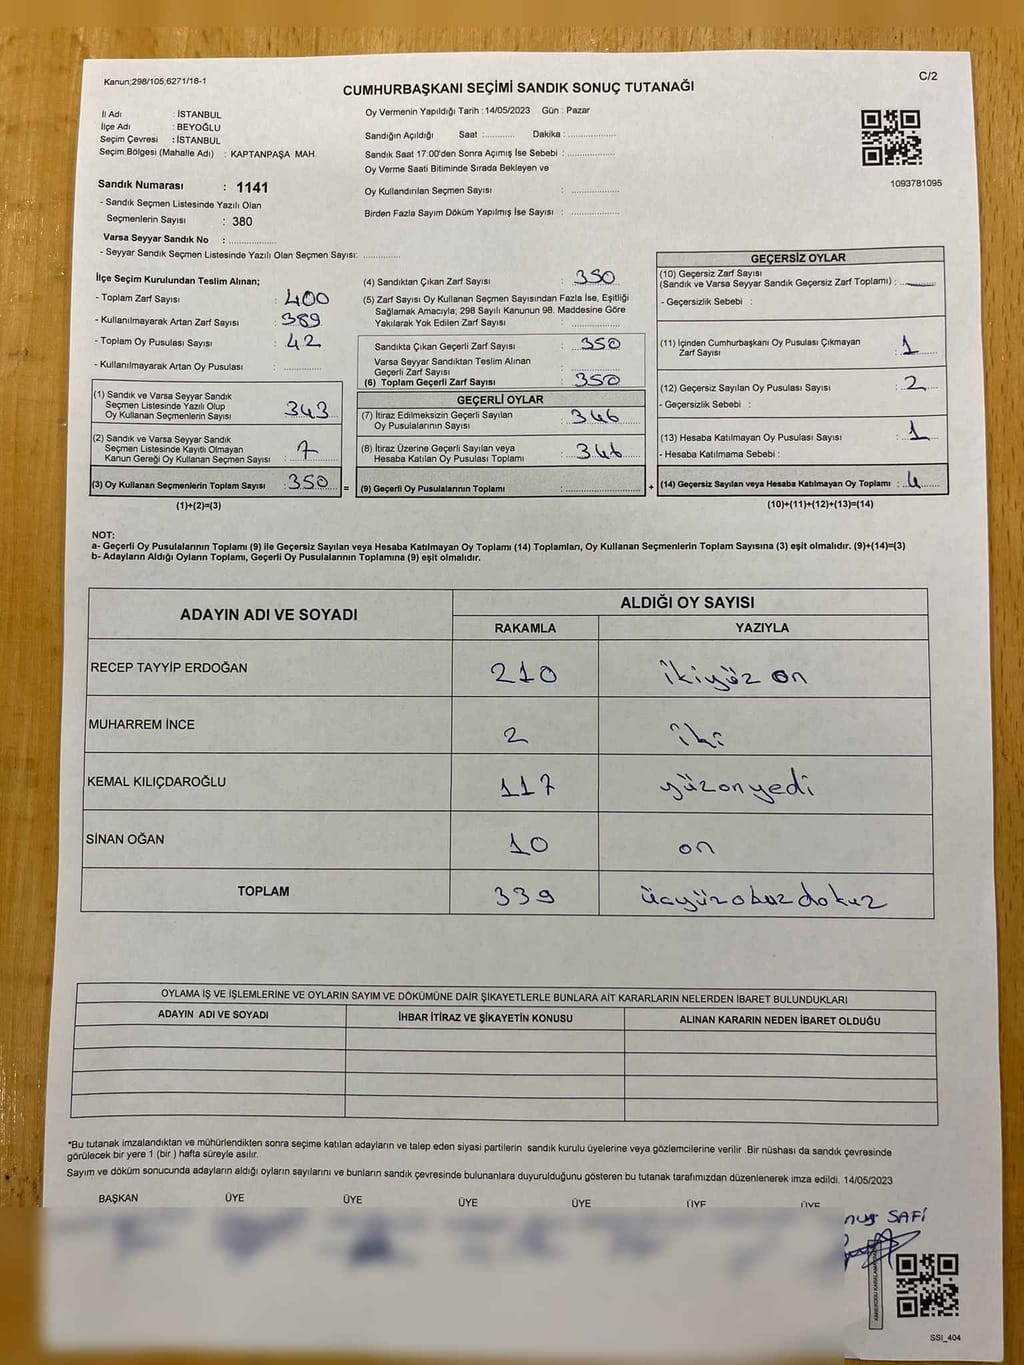 Kanun;298/105;6271/18-1
C/2
CUMHURBAŞKANI SEÇİMİ SANDIK SONUÇ TUTANAĞI
İl Adı : İSTANBUL
İlçe Adı : BEYOĞLU
Seçim Çevresi : İSTANBUL
Seçim Bölgesi (Mahalle Adı) : KAPTANPAŞA MAH.
Oy Vermenin Yapıldığı Tarih : 14/05/2023 Gün : Pazar
Sandığın Açıldığı Saat :............ Dakika : ................
Sandık Saat 17:00'den Sonra Açımış İse Sebebi : ................
Oy Verme Saati Bitiminde Sırada Bekleyen ve
Oy Kullandırılan Seçmen Sayısı : ................
Birden Fazla Sayım Döküm Yapılmış İse Sayısı : ................
1093781095
Sandık Numarası : 1141
- Sandık Seçmen Listesinde Yazılı Olan
Seçmenlerin Sayısı : 380
Varsa Seyyar Sandık No : ................
- Seyyar Sandık Seçmen Listesinde Yazılı Olan Seçmen Sayısı: ............
İlçe Seçim Kurulundan Teslim Alınan;
- Toplam Zarf Sayısı : 400
- Kullanılmayarak Artan Zarf Sayısı : 389
- Toplam Oy Pusulası Sayısı : 42
- Kullanılmayarak Artan Oy Pusulası : ............
(1) Sandık ve Varsa Seyyar Sandık
Seçmen Listesinde Yazılı Olup
Oy Kullanan Seçmenlerin Sayısı : 343
(2) Sandık ve Varsa Seyyar Sandık
Seçmen Listesinde Kayıtlı Olmayan
Kanun Gereği Oy Kullanan Seçmen Sayısı : 7
(3) Oy Kullanan Seçmenlerin Toplam Sayısı : 350 =
(1)+(2)=(3)
(4) Sandıktan Çıkan Zarf Sayısı : 350
(5) Zarf Sayısı Oy Kullanan Seçmen Sayısından Fazla İse, Eşitliği
Sağlamak Amacıyla; 298 Sayılı Kanunun 98. Maddesine Göre
Yakılarak Yok Edilen Zarf Sayısı : ................
Sandıkta Çıkan Geçerli Zarf Sayısı : 350
Varsa Seyyar Sandıktan Teslim Alınan
Geçerli Zarf Sayısı : ................
(6) Toplam Geçerli Zarf Sayısı : 350
GEÇERLİ OYLAR
(7) İtiraz Edilmeksizin Geçerli Sayılan
Oy Pusulalarının Sayısı : 346
(8) İtiraz Üzerine Geçerli Sayılan veya
Hesaba Katılan Oy Pusulası Toplamı : 346
(9) Geçerli Oy Pusulalarının Toplamı : ................ +
GEÇERSİZ OYLAR
(10) Geçersiz Zarf Sayısı
(Sandık ve Varsa Seyyar Sandık Geçersiz Zarf Toplamı) :
- Geçersizlik Sebebi :
(11) İçinden Cumhurbaşkanı Oy Pusulası Çıkmayan
Zarf Sayısı : 1
(12) Geçersiz Sayılan Oy Pusulası Sayısı : 2
- Geçersizlik Sebebi :
(13) Hesaba Katılmayan Oy Pusulası Sayısı : 1
- Hesaba Katılmama Sebebi :
(14) Geçersiz Sayılan veya Hesaba Katılmayan Oy Toplamı : 4
(10)+(11)+(12)+(13)=(14)
NOT:
a- Geçerli Oy Pusulalarının Toplamı (9) ile Geçersiz Sayılan veya Hesaba Katılmayan Oy Toplamı (14) Toplamları, Oy Kullanan Seçmenlerin Toplam Sayısına (3) eşit olmalıdır. (9)+(14)=(3)
b- Adayların Aldığı Oyların Toplamı, Geçerli Oy Pusulalarının Toplamına (9) eşit olmalıdır.
ADAYIN ADI VE SOYADI
ALDIĞI OY SAYISI
RAKAMLA YAZIYLA
RECEP TAYYİP ERDOĞAN 210 ikiyüz on
MUHARREM İNCE 2 iki
KEMAL KILIÇDAROĞLU 117 yüzonyedi
SİNAN OĞAN 10 on
TOPLAM 339 üçyüzotuzdokuz
OYLAMA İŞ VE İŞLEMLERİNE VE OYLARIN SAYIM VE DÖKÜMÜNE DAİR ŞİKAYETLERLE BUNLARA AİT KARARLARIN NELERDEN İBARET BULUNDUKLARI
ADAYIN ADI VE SOYADI İHBAR İTİRAZ VE ŞİKAYETİN KONUSU ALINAN KARARIN NEDEN İBARET OLDUĞU
*Bu tutanak imzalandıktan ve mühürlendikten sonra seçime katılan adayların ve talep eden siyasi partilerin sandık kurulu üyelerine veya gözlemcilerine verilir .Bir nüshası da sandık çevresinde
görülecek bir yere 1 (bir ) hafta süreyle asılır.
Sayım ve döküm sonucunda adayların aldığı oyların sayılarını ve bunların sandık çevresinde bulunanlara duyurulduğunu gösteren bu tutanak tarafımızdan düzenlenerek imza edildi. 14/05/2023
BAŞKAN ÜYE ÜYE ÜYE ÜYE ÜYE ÜYE
SAFİ
SSI_404